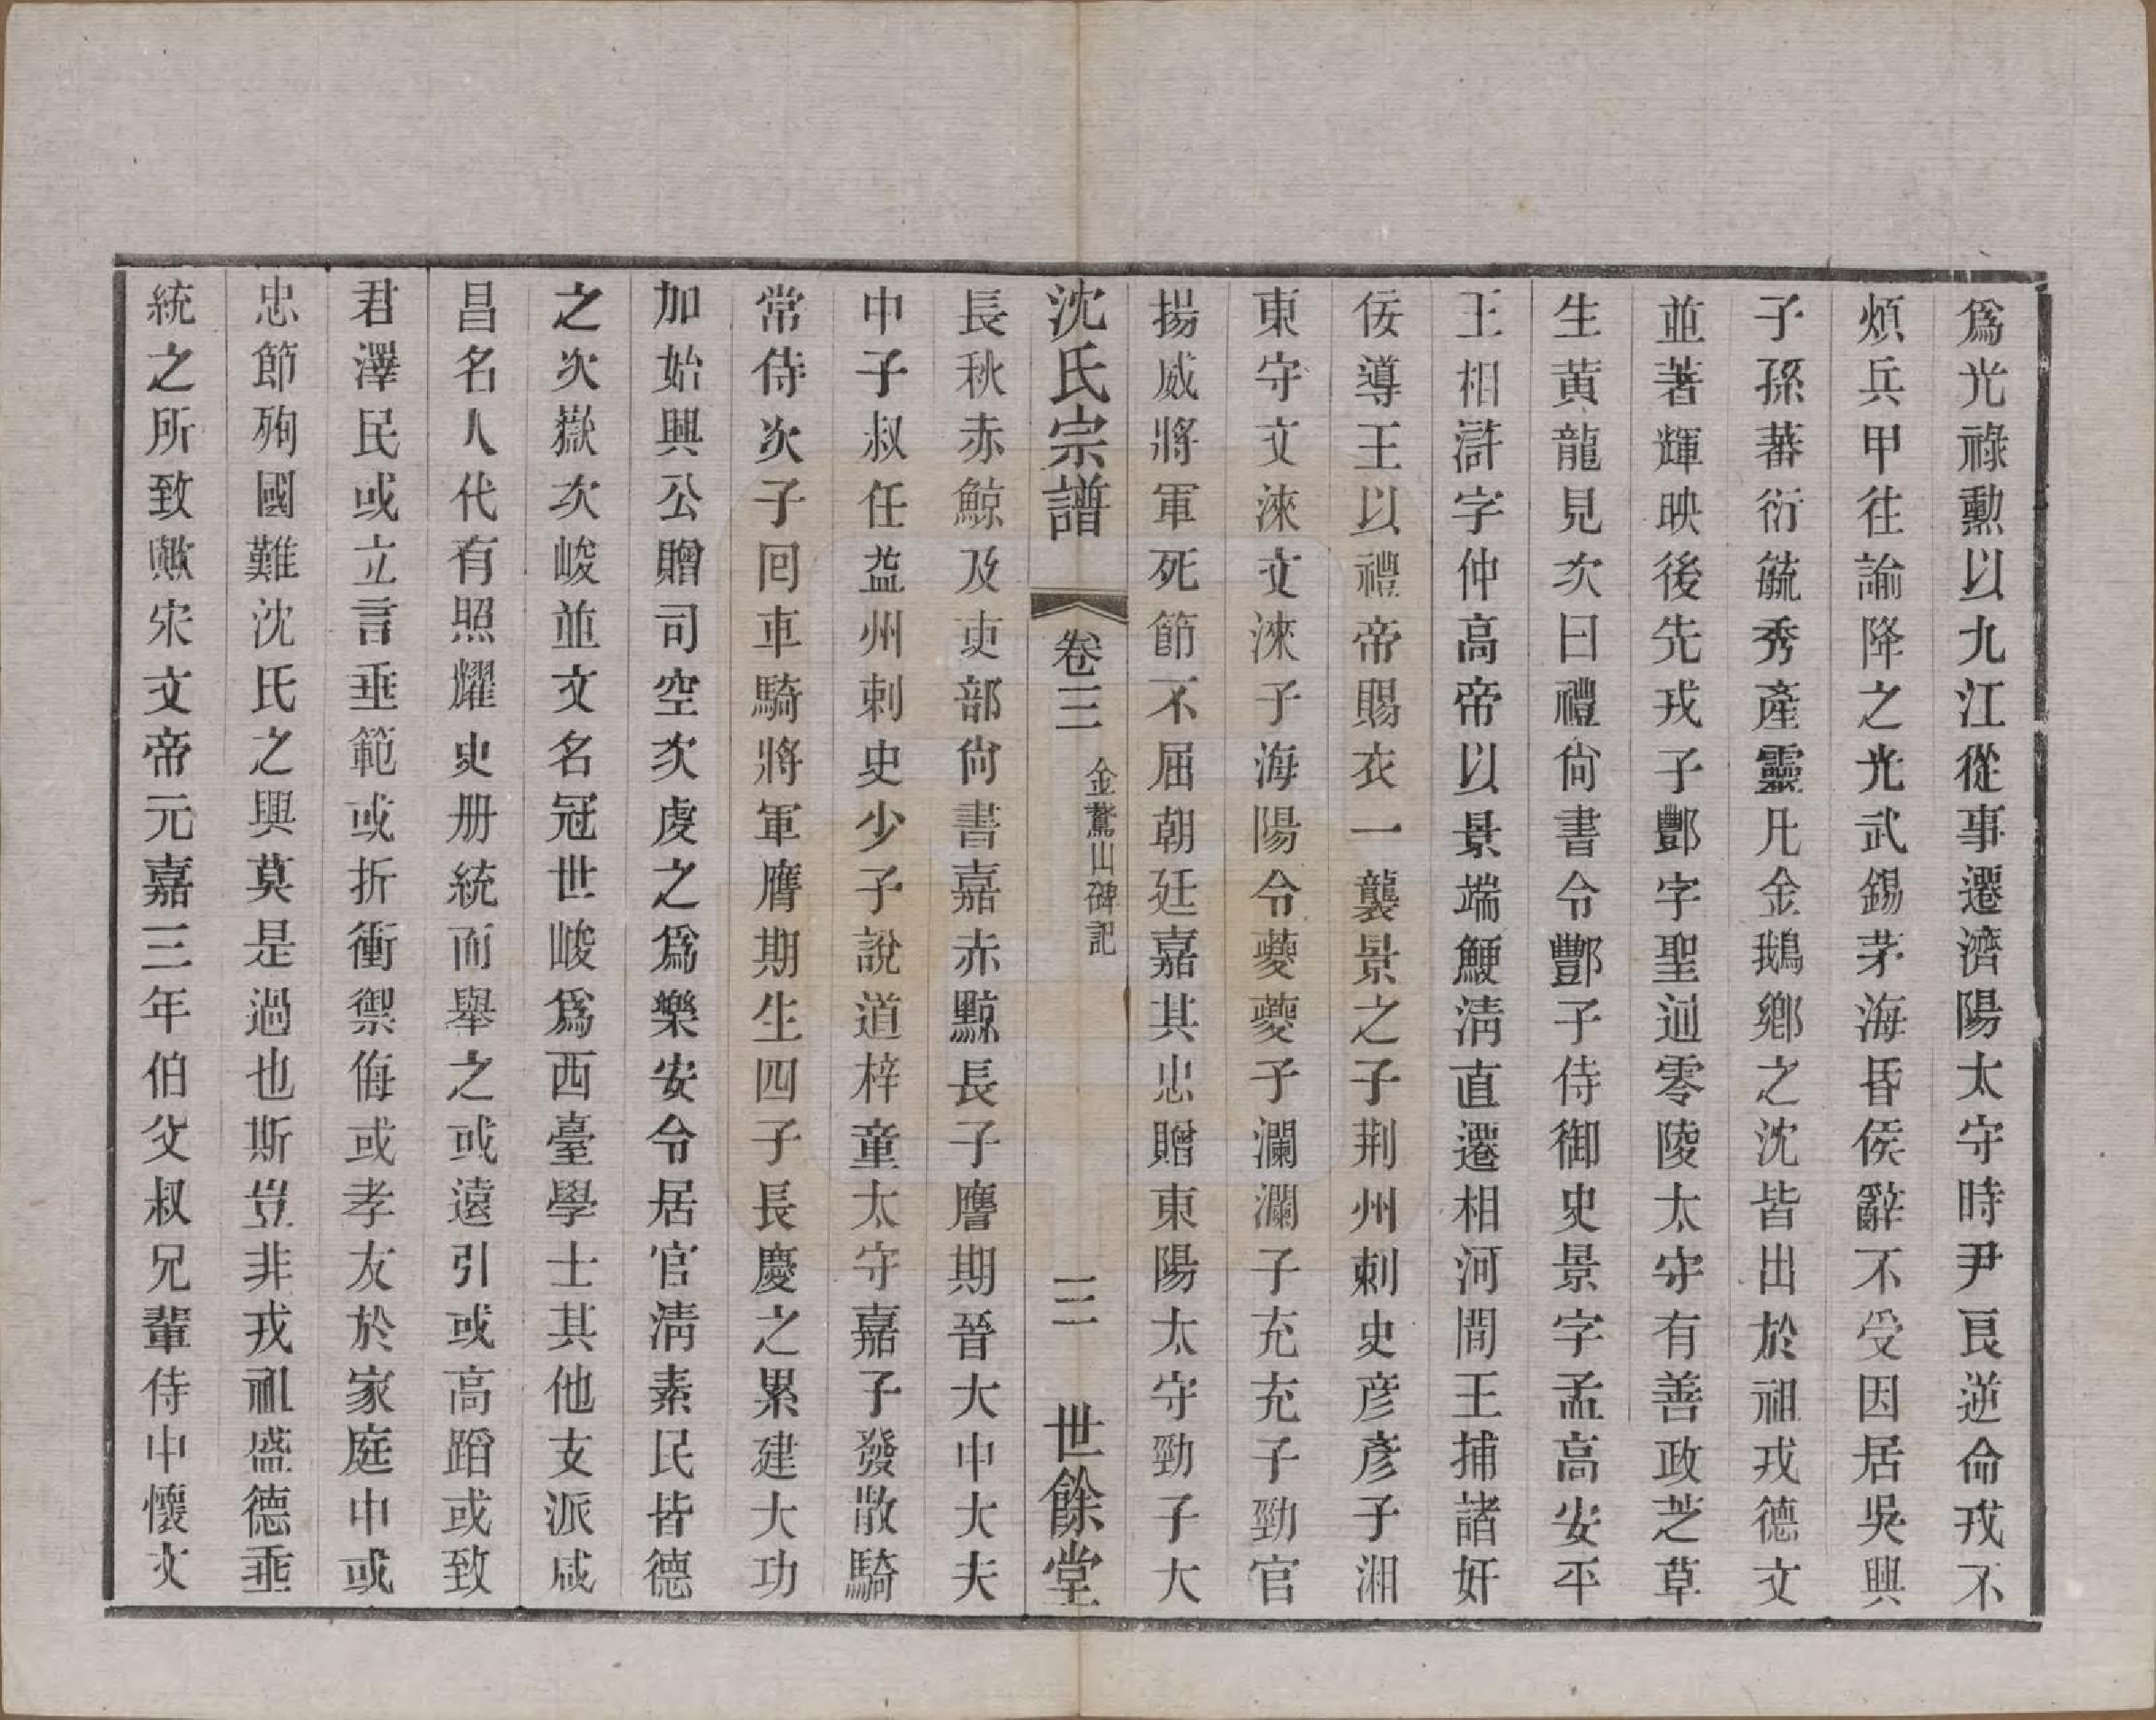 爲光祿勳以九江從事遷濟陽太守時尹良逆命戎不
煩兵甲往諭降之光武錫茅海昏侯辭不受因居吳興
子孫蕃衍毓秀產靈凡金鵝鄉之沈皆出於祖戎德文
並著輝映後先戎子酆字聖通零陵太守有善政芝草
生黃龍見次曰禮尙書令酆子侍御史景字孟高安平
王相滸字仲高帝以景端鯁淸直遷相河間王捕諸奸
佞導王以禮帝賜衣一襲景之子荆州刺史彦彦子湘
東守文淶文淶子海陽令夔夔子瀾瀾子充充子勁官
揚威將軍死節不屈朝廷嘉其忠贈東陽太守勁子大
沈氏宗譜 卷三 金鵞山碑記 三 世餘堂
長秋赤鯨及吏部尙書嘉赤黥長子鷹期晉大中大夫
中子叔任益州刺史少子說道梓童太守嘉子發散騎
常侍次子囘車騎將軍膺期生四子長慶之累建大功
加始興公贈司空次虔之爲樂安令居官淸素民皆德
之次嶽次峻並文名冠世峻爲西臺學士其他支派咸
昌名人代有照耀史册統而舉之或遠引或高蹈或致
君澤民或立言垂範或折衝禦侮或孝友於家庭中或
忠節殉國難沈氏之興莫是過也斯豈非戎祖盛德垂
統之所致歟宋文帝元嘉三年伯父叔兄輩侍中懷文